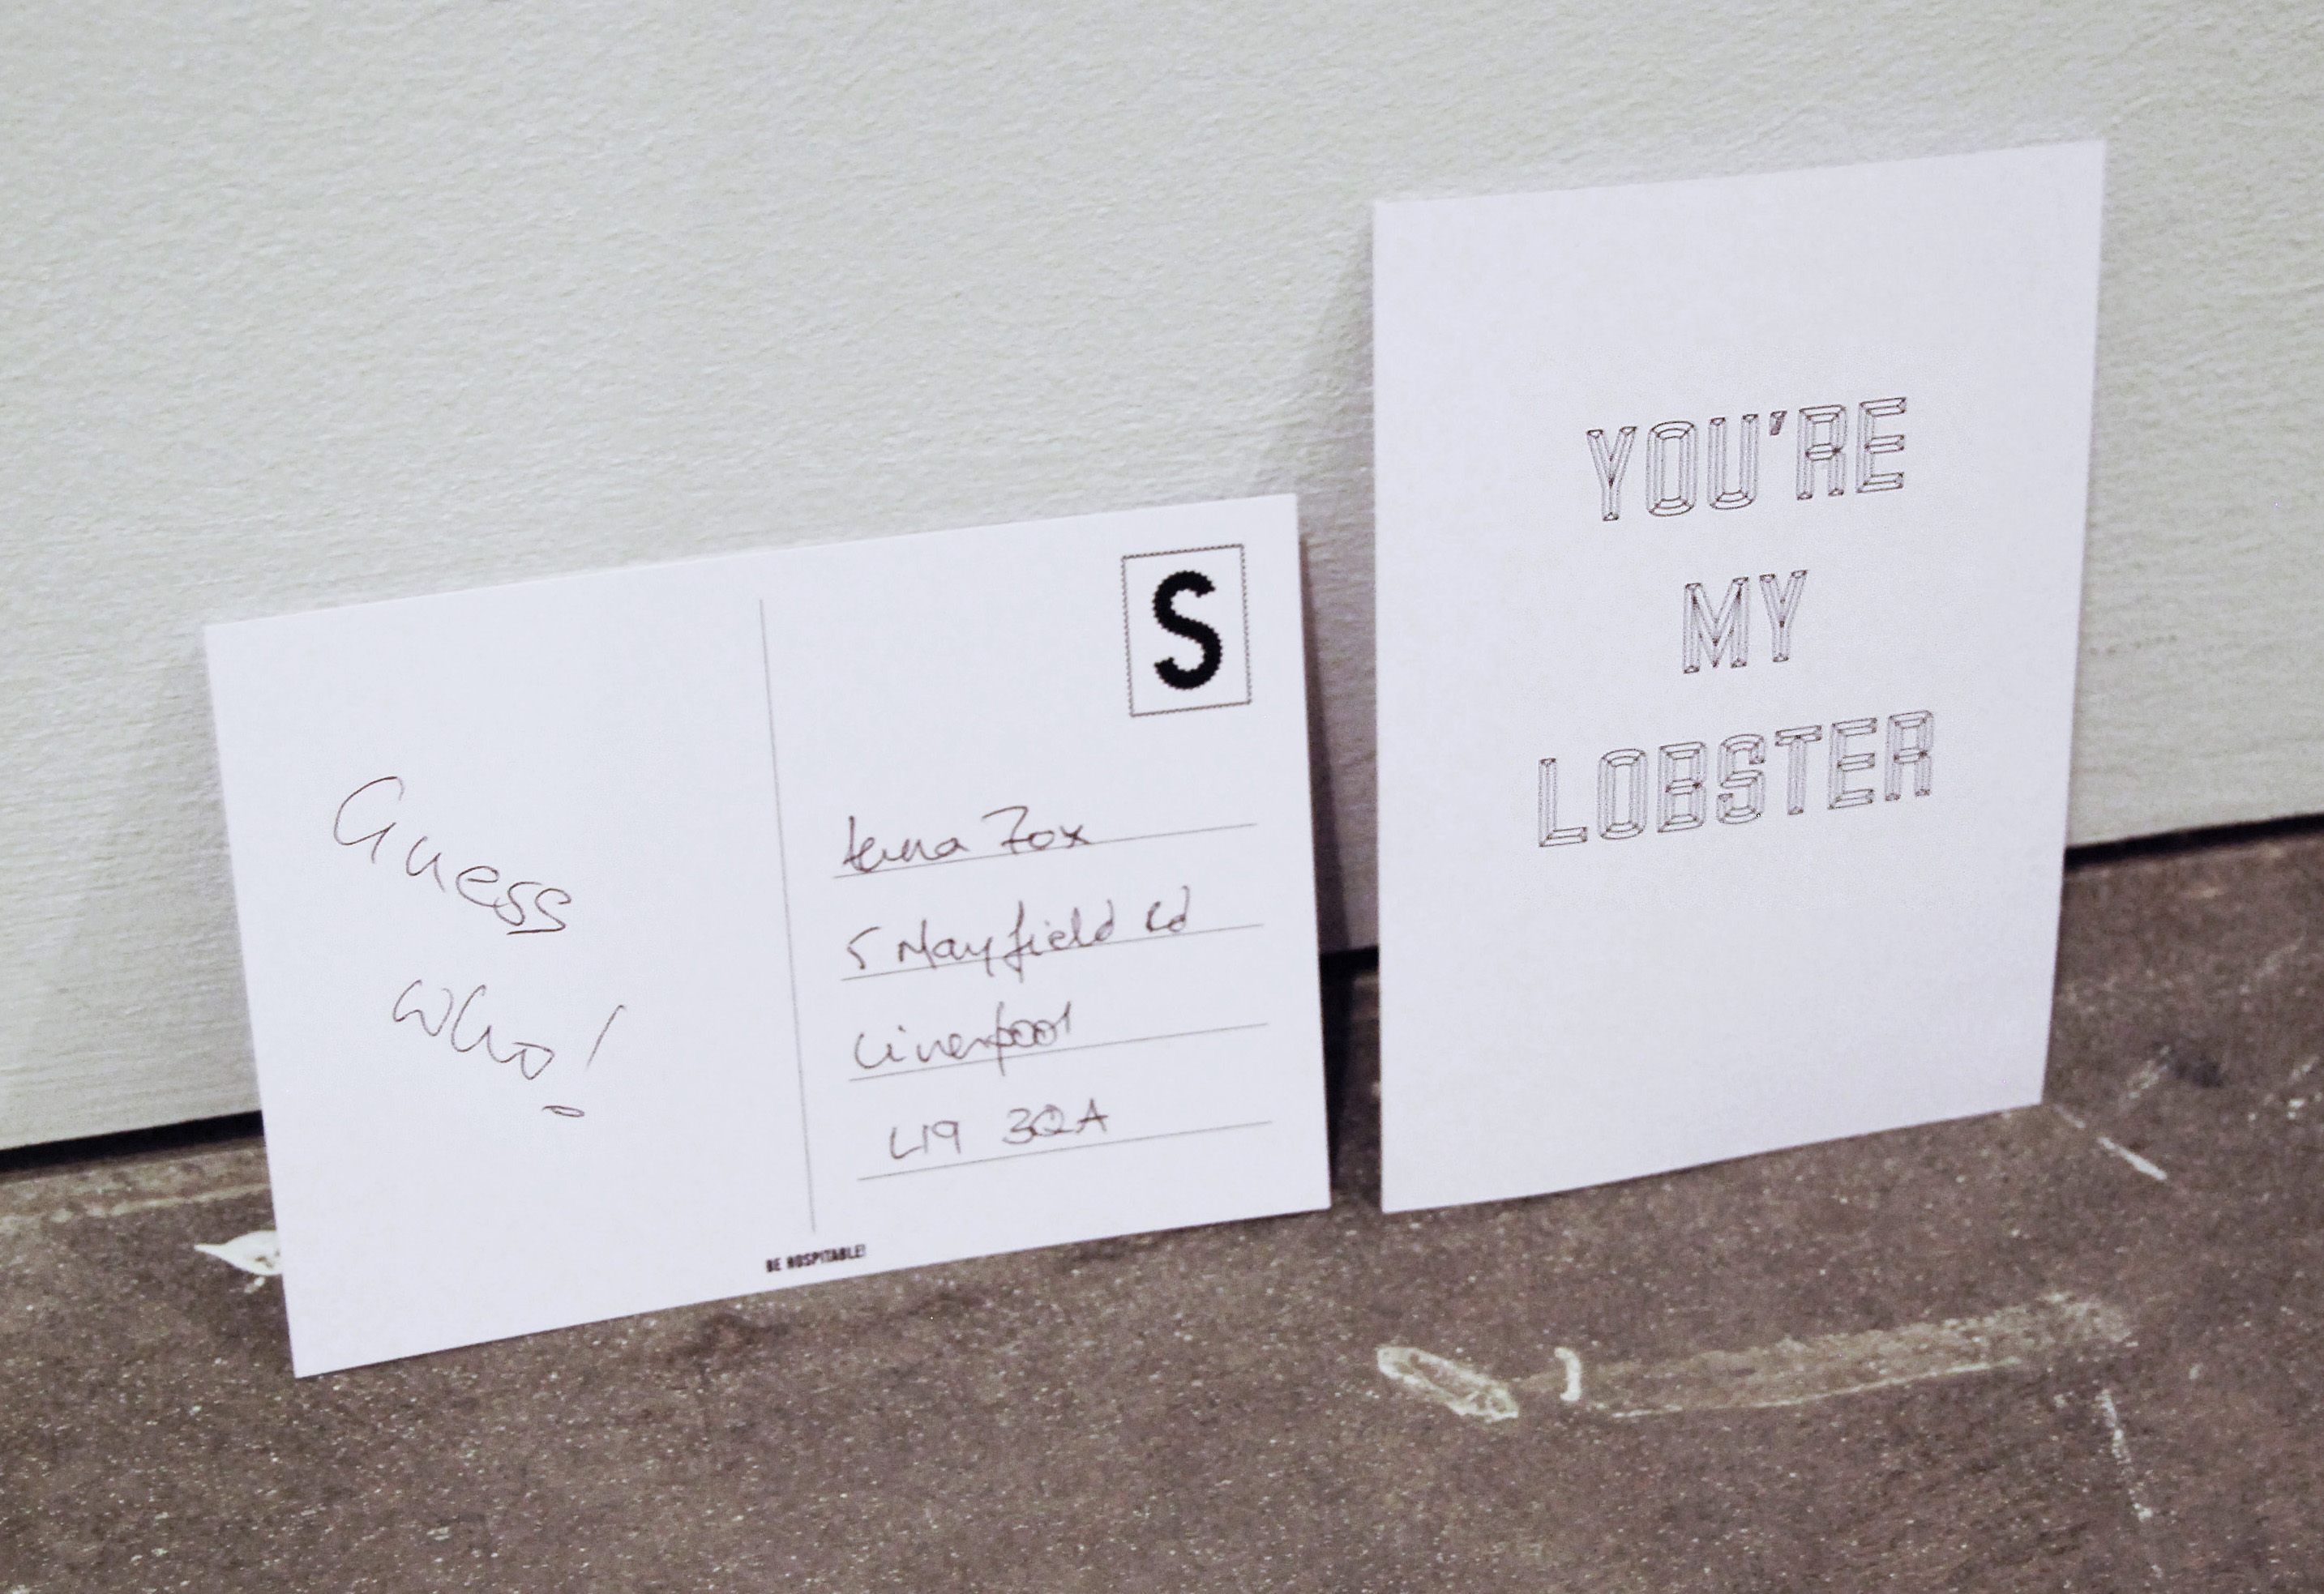 Guess
Who!
S
Fox
5 Mayfield Rd
Liverpool
L19 3QA
BE HOSPITABLE!
YOU'RE
MY
LOBSTER